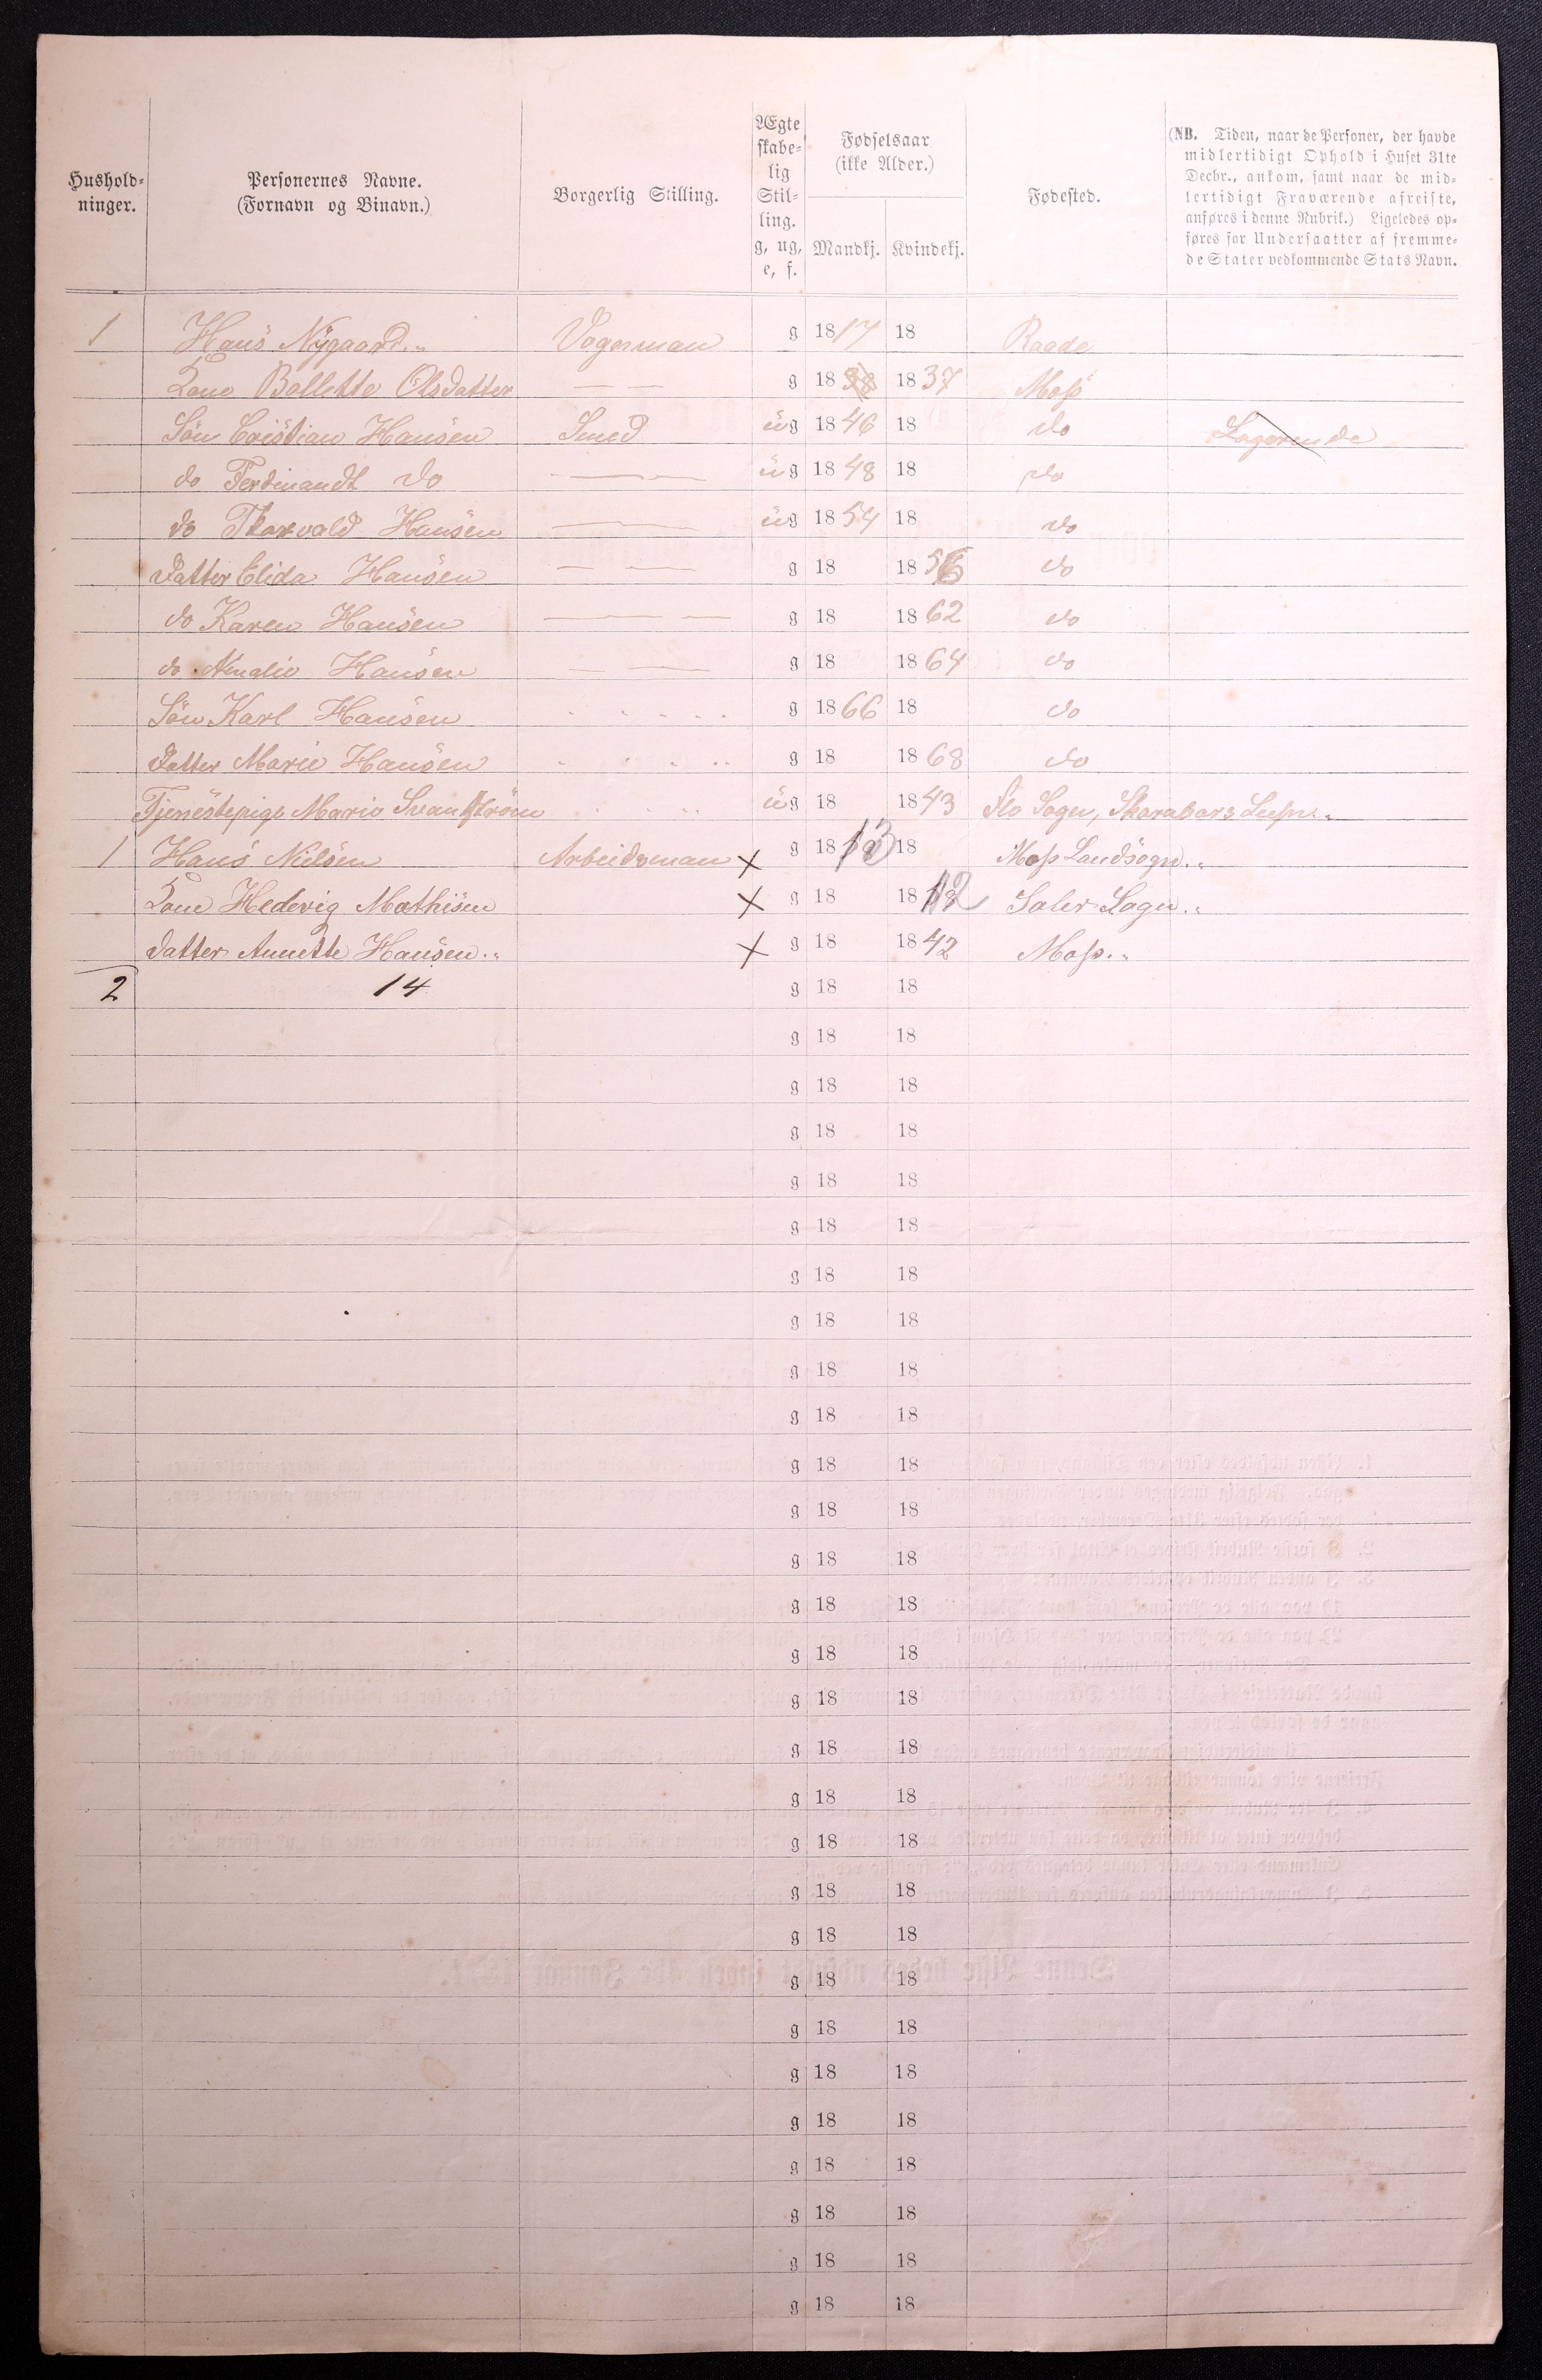 Hushold-
ninger.
Personernes Navne.
(Fornavn og Binavn.)
Borgerlig Stilling.
Ægte
skabe-
lig
Stil-
ling.
g, ug,
e, f.
Fødselsaar
(ikke Alder.)
Mandkj. Kvindekj.
Fødested.
(NB. Tiden, naar de Personer, der havde
midlertidigt Ophold i Huset 31te
Decbr., ankom, samt naar de mid-
lertidigt Fraværende afreiste,
anføres i denne Rubrik.) Ligeledes op-
føres for Undersaatter af fremme-
de Stater vedkommende Stats Navn.
1 Hans Nygaard Vognman g 1817 18 Raade
Kone Bollette Olsdatter — — g 18 1837 Moss
Søn Cristian Hansen Smed ug 1846 18 do
do Ferdinandt do — — ug 1848 18 do
do Thorvald Hansen — — ug 1854 18 do
Datter Elida Hansen — — g 18 18 do
do Karen Hansen — — g 18 1862 do
do Amalie Hansen — — g 18 1864 do
Søn Karl Hansen g 1866 18 do
Datter Marie Hansen g 18 1868 do
Tjenestepige Marie Svanstrøm ug 18 1843 Flo Sogn,
1 Hans Nielsen Arbeidsman x g 1813 18 Moss Landsogn
Kone Hedevig Mathisen x g 18 1812 Saler Sogn
Datter Annette Hansen x g 18 1842 Moss
2 14 g 18 18
g 18 18
g 18 18
g 18 18
g 18 18
g 18 18
g 18 18
g 18 18
g 18 18
g 18 18
g 18 18
g 18 18
g 18 18
g 18 18
g 18 18
g 18 18
g 18 18
g 18 18
g 18 18
g 18 18
g 18 18
g 18 18
g 18 18
g 18 18
g 18 18
g 18 18
g 18 18
g 18 18
g 18 18